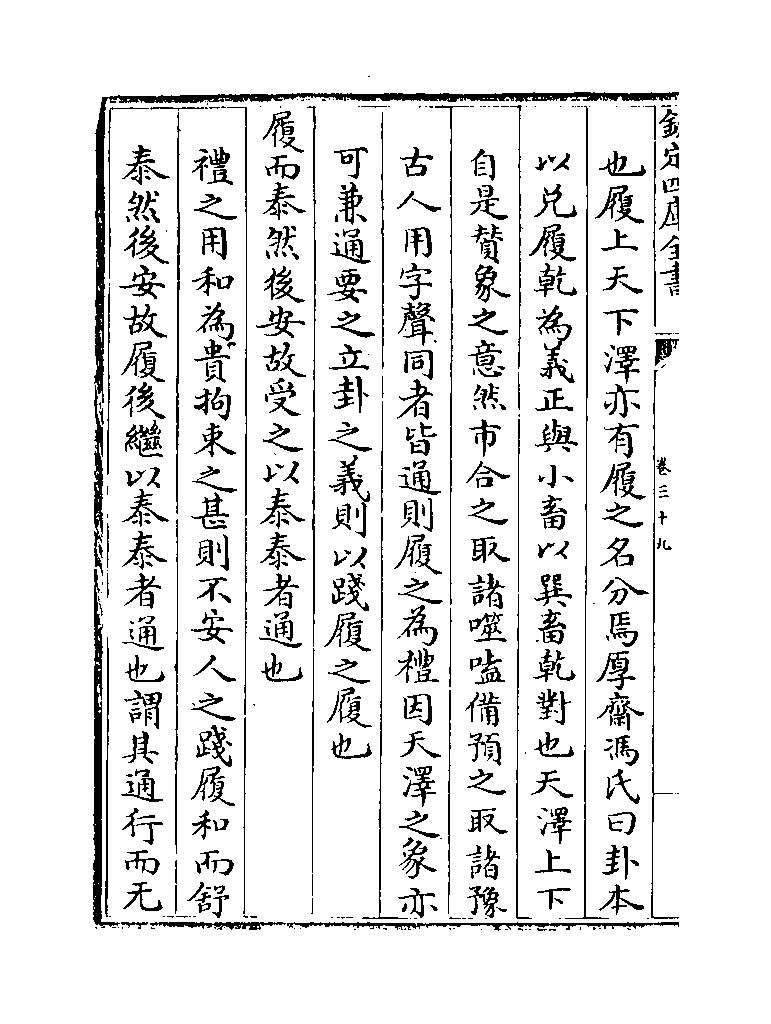 欽定四庫全書
卷三十九
也履上天下澤亦有履之名分焉厚齋馮氏曰卦本
以兌履乾為義正與小畜以巽畜乾對也天澤上下
自是賛象之意然市合之取諸噬嗑備預之取諸豫
古人用字聲同者皆通則履之為禮因天澤之象亦
可兼通要之立卦之義則以踐履之履也
履而泰然後安故受之以泰泰者通也
禮之用和為貴拘束之甚則不安人之踐履和而舒
泰然後安故履後繼以泰泰者通也謂其通行而无